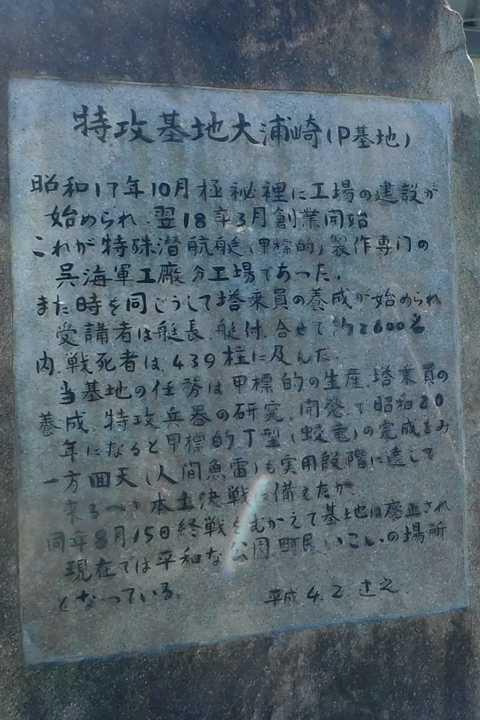 特攻基地大浦崎(P基地)
昭和17年10月極秘裡に工場の建設が
始められ、翌18年3月創業開始
これが特殊潜航艇(甲標的)製作専門の
呉海軍工廠分工場であった。
また時を同じうして塔乗員の養成が始められ
受講者は艇長、艇付、合せて約2600名
内、戦死者は、439柱に及んだ。
当基地の任務は甲標的の生産、塔乗員の
養成、特攻兵器の研究、開発で昭和20
年になると甲標的丁型(蛟竜)の完成をみ
一方回天(人間魚雷)も実用段階に達して
来るべき本土決戦に備えたが
同年8月15日終戦をむかえて基地は廃止され
現在では平和な公園、町民いこいの場所
となっている。
平成4.2 建之